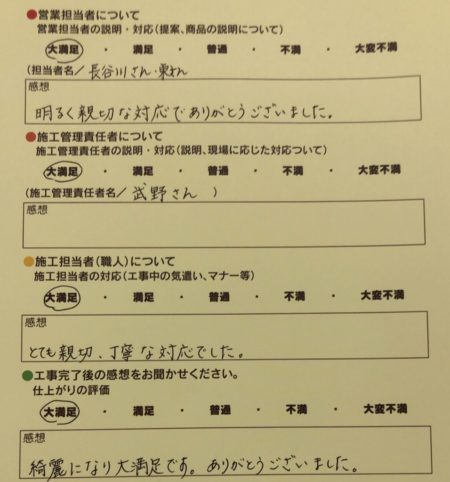 ●営業担当者について
営業担当者の説明・対応(提案、商品の説明について)
大満足 ・ 満足 ・ 普通 ・ 不満 ・ 大変不満
(担当者名/ 長谷川さん・東さん
感想
明るく親切な対応でありがとうございました。
●施工管理責任者について
施工管理責任者の説明・対応(説明、現場に応じた対応ついて)
大満足 ・ 満足 ・ 普通 ・ 不満 ・ 大変不満
(施工管理責任者名/ 武野さん )
感想
●施工担当者(職人)について
施工担当者の対応(工事中の気遣い、マナー等)
大満足 ・ 満足 ・ 普通 ・ 不満 ・ 大変不満
感想
とても親切、丁寧な対応でした。
●工事完了後の感想をお聞かせください。
仕上がりの評価
大満足 ・ 満足 ・ 普通 ・ 不満 ・ 大変不満
感想
綺麗になり大満足です。ありがとうございました。